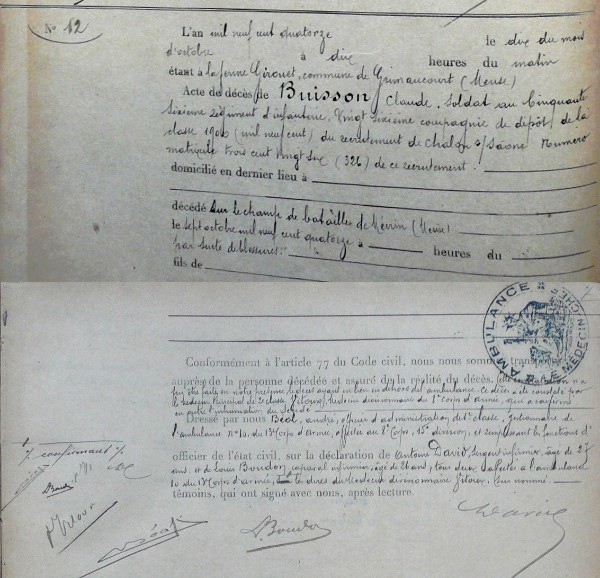 N° 12
L'an mil neuf cent quatorze le dix du mois
d'octobre à dix heures du matin
étant à la ferme Girouet, commune de Grimaucourt (Meuse)
Acte de décès de Buisson, Claude, Soldat au Cinquante
Sixième régiment d'infanterie, Vingt sixième compagnie de dépôt, de la
classe 1900 (mil neuf cent) du recrutement de Chalon s/Saône Numéro
matricule trois cent vingt six (326) de ce recrutement.
domicilié en dernier lieu à
décédé sur le champ de batailles de (Meuse)
le sept octobre mil neuf cent quatorze à heures du
par suite de blessures.
fils de
AMBULANCE
LE MÉDECIN CHEF
Conformément à l'article 77 du Code civil, nous nous sommes transporté
auprès de la personne décédée et assuré de la réalité du décès, Cette constatation n'a
pu être faite en notre présence, le décès ayant eu lieu en dehors de l'ambulance. Ce décès a été constaté par
le médecin principal de 2e classe médecin divisionnaire du Corps d'Armée, qui a certifié
en outre l'inhumation du décédé
Dressé par nous André, officier d'administration de classe, gestionnaire de
l'ambulance n° 10 du Corps d'Armée, affectée au Corps, 15e division, et remplissant les fonctions d'
officier de l'état civil, sur la déclaration de Antoine David, Sergent infirmier, âgé de 27
ans et de Louis Boudon, caporal infirmier, âgé de ans, tous deux affectés à l'ambulance
10 du Corps d'Armée, les dires du médecin divisionnaire sus nommé.
témoins, qui ont signé avec nous, après lecture.
confirmant
David